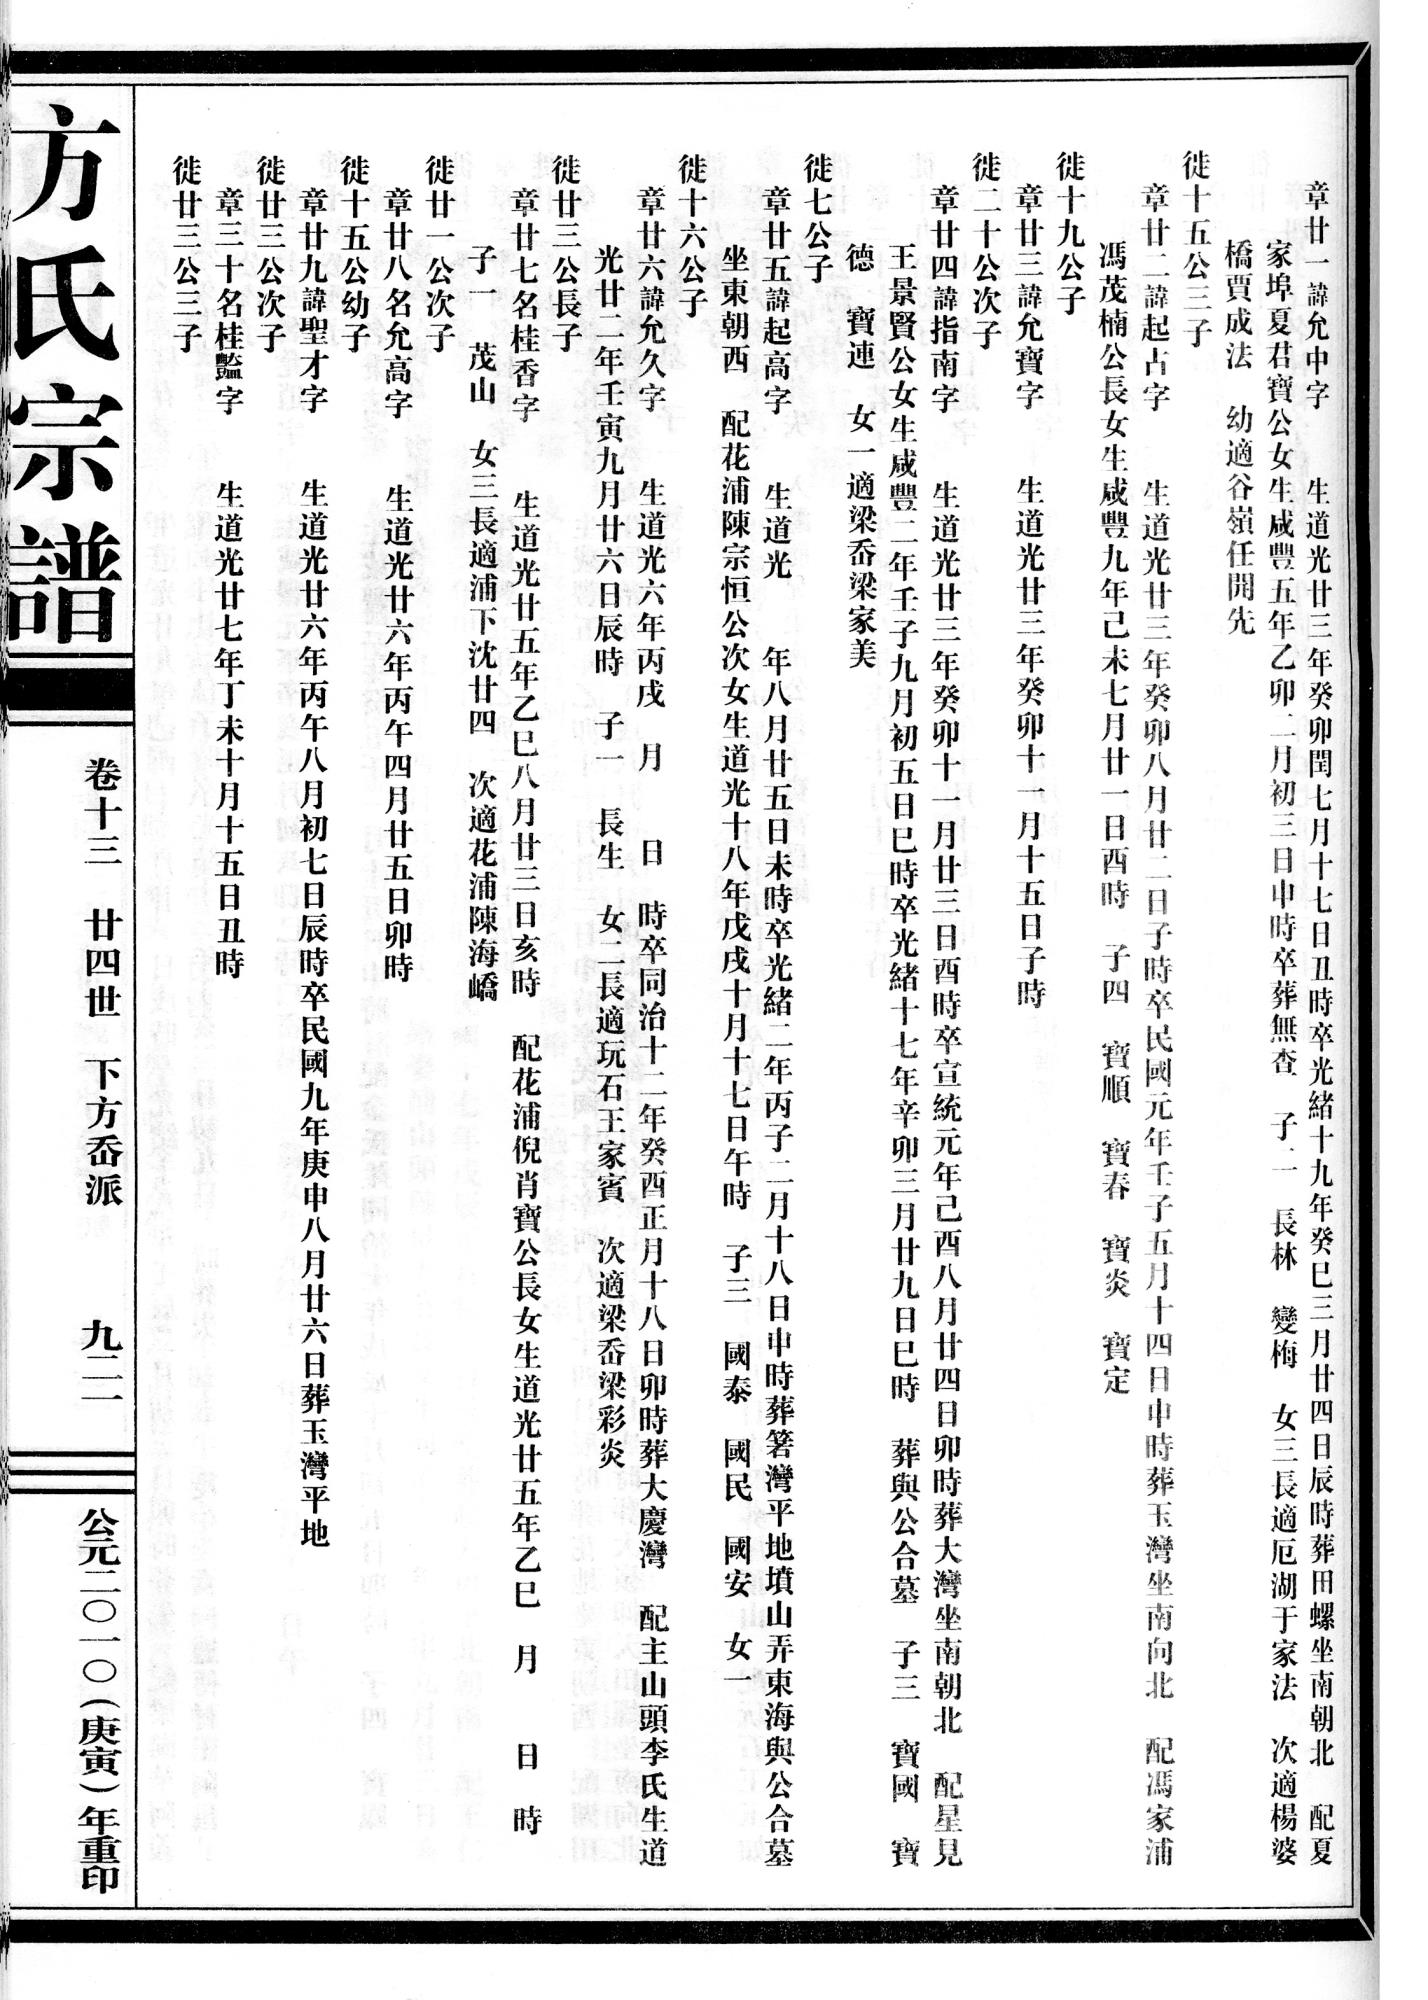 章廿一諱允中字　　生道光廿三年癸卯閏七月十七日丑時卒光緒十九年癸巳三月廿四日辰時葬田螺坐南朝北　配夏
家埠夏君寶公女生咸豐五年乙卯二月初三日申時卒葬無查　子二　長林　變梅　女三長適厄湖于家法　次適楊婆
橋賈成法　幼適谷嶺任開先
徙十五公三子
章廿二諱起占字　　生道光廿三年癸卯八月廿二日子時卒民國元年壬子五月十四日申時葬玉灣坐南向北　配馮家浦
馮茂楠公長女生咸豐九年己未七月廿一日酉時　子四　寶順　寶春　寶炎　寶定
徙十九公子
章廿三諱允寶字　　生道光廿三年癸卯十一月十五日子時
徙二十公次子
章廿四諱指南字　　生道光廿三年癸卯十一月廿三日酉時卒宣統元年己酉八月廿四日卯時葬大灣坐南朝北　配星見
王景賢公女生咸豐二年壬子九月初五日巳時卒光緒十七年辛卯三月廿九日巳時　葬與公合墓　子三　寶國　寶
德　寶連　女一適梁岙梁家美
徙七公子
章廿五諱起高字　　生道光　　年八月廿五日未時卒光緒二年丙子二月十八日申時葬箬灣平地墳山弄東海與公合墓
坐東朝西　配花浦陳宗恒公次女生道光十八年戊戌十月十七日午時　子三　國泰　國民　國安　女一
徙十六公子
章廿六諱允久字　　生道光六年丙戌　月　　日　時卒同治十二年癸酉正月十八日卯時葬大慶灣　配主山頭李氏生道
光廿二年壬寅九月廿六日辰時　子一　長生　女二長適玩石王家賓　次適梁岙梁彩炎
徙廿三公長子
章廿七名桂香字　　生道光廿五年乙巳八月廿三日亥時　配花浦倪肖寶公長女生道光廿五年乙巳　月　　日　時
子一　茂山　女三長適浦下沈廿四　次適花浦陳海嶠
徙廿一公次子
章廿八名允高字　　生道光廿六年丙午四月廿五日卯時
徙十五公幼子
章廿九諱聖才字　　生道光廿六年丙午八月初七日辰時卒民國九年庚申八月廿六日葬玉灣平地
徙廿三公次子
章三十名桂豔字　　生道光廿七年丁未十月十五日丑時
徙廿三公三子
方氏宗譜　卷十三　廿四世　下方岙派　九二一　公元二〇一〇（庚寅）年重印